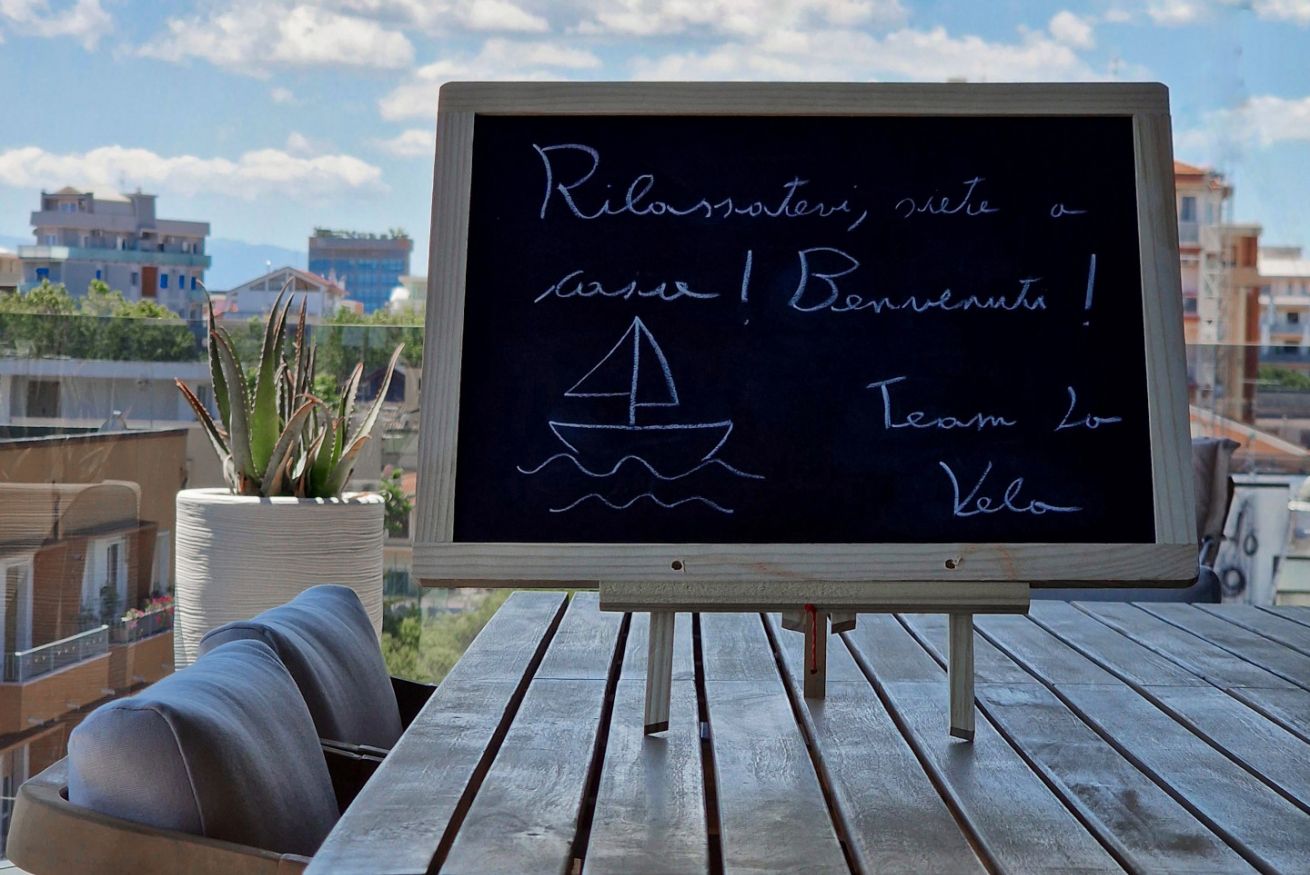 Rilassatevi, siete a
casa! Benvenuti!
Team La
Vela